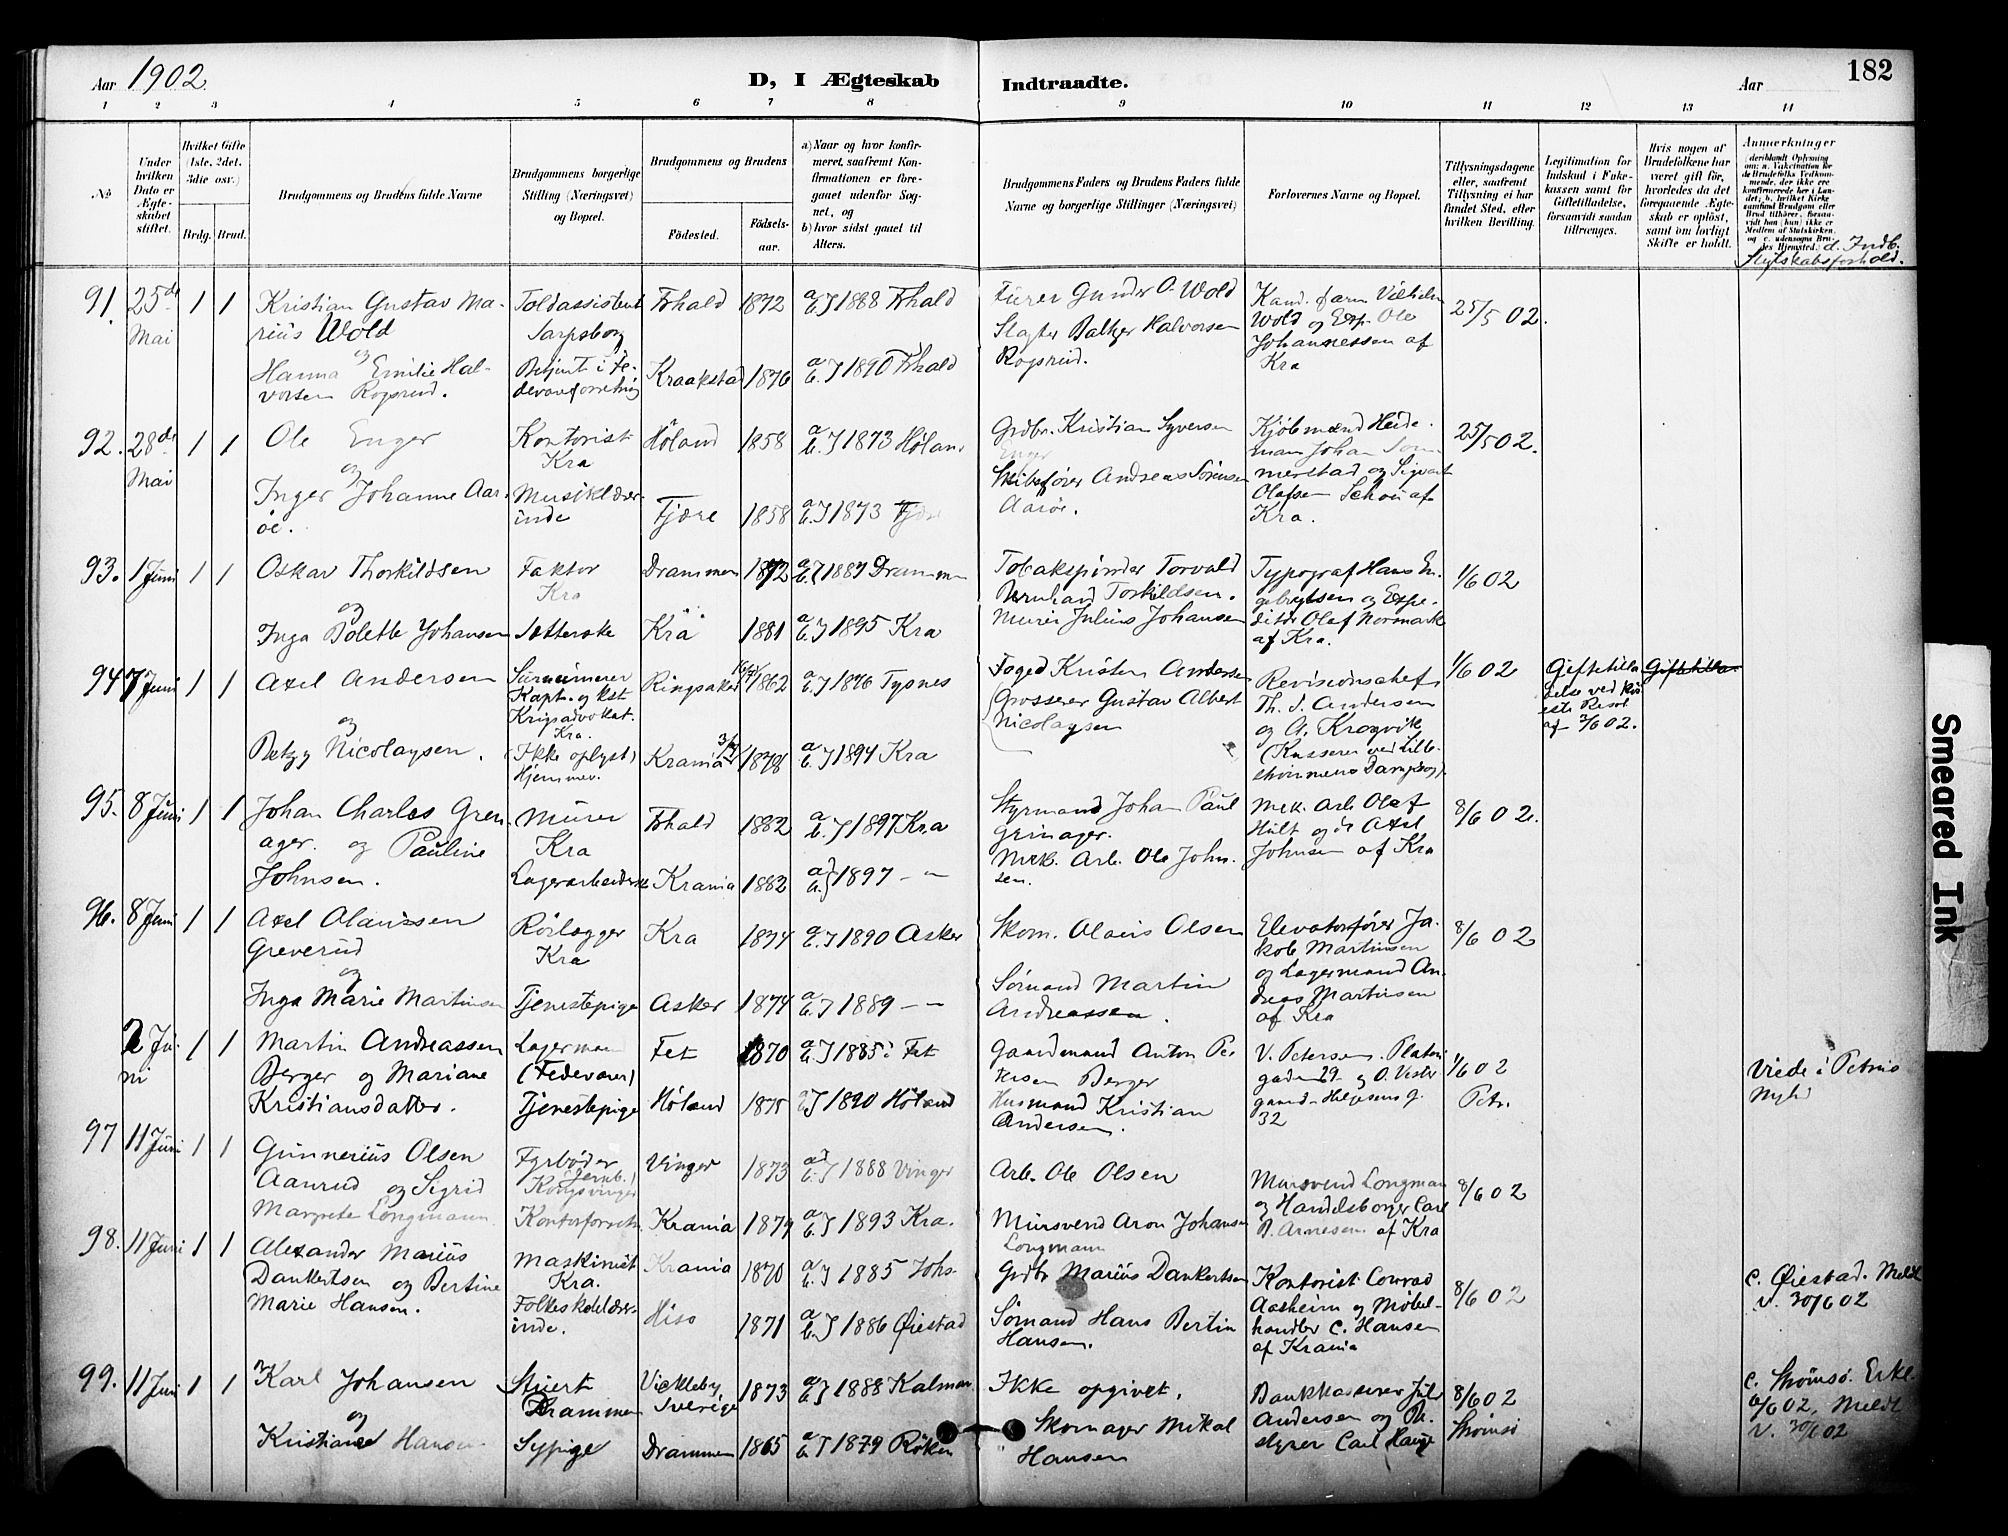 Aar 1902
D, I Ægteskab Indtraadte.
Aar
182
1 2 3 4 5 6 7 8 9 10 11 12 13 14
No
Under hvilken Dato er Ægteskabet stiftet.
Hvilket Gifte (1ste, 2det, 3die osv.)
Brdg. Brud.
Brudgommens og Brudens fulde Navne
Brudgommens borgerlige Stilling (Næringsvei) og Bopæl.
Brudgommens og Brudens
Födested.
Födselsaar.
a) Naar og hvor konfirmeret, saafremt Konfirmationen er foregaaet udenfor Sognet, og
b) hvor sidst gaaet til Alters.
Brudgommens Faders og Brudens Faders fulde Navne og borgerlige Stillinger (Næringsvei)
Forlovernes Navne og Bopæl.
Tillysningsdagene eller, saafremt Tillysning ei har fundet Sted, efter hvilken Bevilling.
Legitimation for Indskud i Enkekassen samt for Giftetilladelse, forsaavidt saadan tiltrænges.
Hvis nogen af Brudefolkene har været gift før, hvorledes da det foregaaende Ægteskab er opløst, samt om lovligt Skifte er holdt.
Anmærkninger
d. Indb. Slegtskabsforhold.
91. 25de Mai 1 1
Kristian Gustav Marius Wold
og
Hanna Emilie Halvorsen Rogsrud.
Toldassistent Sarpsborg
Betjent i Fedevareforretning
Frhald 1872 1888 Frhald
Kraakstad 1876 1890 Frhald
Fürer Gunder O. Wold
Slagter Baltzer Halvorsen Rogsrud.
Kand. farm Vilhelm Wold og Exp. Ole Johannessen af Kra
25/5 02.
92. 28de Mai 1 1
Ole Enger
og
Inger Johanne Aarøe.
Kontorist Kra
Musiklærerinde
Høland 1858 1873 Høland
Fjære 1858 1873 Fjære
Grdbr. Kristian Syversen Enger
Skibsfører Andreas Sörensen Aarøe.
Kjöbmænd Heideman Johan Sommerstad og Sigvart Olafsen Schou af Kra.
25/5 02.
93. 1 Juni 1 1
Oskar Thorkildsen
og
Inga Bolette Johansen
Faktor Kra
Sætterske
Drammen 1872 1887 Drammen
Kra 1881 1895 Kra
Tobakspinder Torvald Bernhard Torkildsen.
Murer Julius Johansen
Typograf Hans Engebretsen og Expeditör Olaf Normark af Kra.
1/6 02
94 7 Juni 1 1
Axel Andersen
og
Betzy Nicolaysen.
Surnumerer Kapt. og kst Krigsadvokat. Kra.
(Ikke oplyst) Hjemmev.
Ringsaker 1862 1876 Tysnes
Krania 1878 1894 Kra
Foged Kristen Andersen
Grosserer Gustav Albert Nicolaysen
Revisionschef Th. J. Andersen og A. Krogvik (Kasserer ved Lillestrømmens Dampsag).
1/6 02
Giftetilladelse ved Resol af 3/6 02.
95. 8 Juni 1 1
Johan Charles Grenager. og Pauline Johnsen.
Murer Kra
Lagerarbeiderske
Frhald 1882 1897 Kra
Krania 1882 1897 – „
Styrmand Johan Paul Grinager.
Mek. Arb. Ole Johnsen.
Mek. Arb. Olaf Hult og Axel Johnsen af Kra
8/6 02.
96. 8 Juni 1 1
Axel Olaussen Greverud
og
Inga Marie Martinsen
Rörlægger Kra
Tjenestepige
Kra 1874 1890 Asker
Asker 1874 1889 – „
Skom. Olaus Olsen
Sömand Martin Andreassen.
Elevatorfører Jakob Martinsen og Lagermand Andreas Martinsen af Kra
8/6 02
2 Juni 1 1
Martin Andreassen Berger og Mariane Kristiansdatter.
Lagerman (Fedevarer)
Tjenestepige
Fet 1870 1885 i Fet
Höland 1875 1890 Höland
Gaardmand Anton Petersen Berger
Husmand Kristian Andersen.
V. Petersen. Platougaden 29 og O. Vestergaard – Helgesens g. 32
1/6 02
Petr.
Viede i Petrus
97 11 Juni 1 1
Gunnerius Olsen Aanrud og Sigrid Margrete Longmann
Fyrböder (Jernb.) Kongsvinger
Kontorforretn.
Vinger 1873 1888 Vinger
Krania 1879 1893 Kra.
Arb. Ole Olsen
Mursvend Aron Johansen Longmann
Mursvend Longman og Handelsborger Carl B. Arnesen af Kra
8/6 02
98. 11 Juni 1 1
Alexander Marius Dankertsen og Bertine Marie Hansen.
Maskinist Kra.
Folkeskolelærerinde.
Krania 1870 1885 Johs.
Hisø 1871 1886 Øiestad
Grdbr Marius Dankertsen
Sömand Hans Bertin Hansen.
Kontorist Conrad Aasheim og Möbelhandler C. Hansen af Krania
8/6 02
c. Øiestad. Meldt v. 30/6 02
99. 11 Juni 1 1
Karl Johansen
og
Kristiane Hansen
Stuert Drammen
Sypige
Vickleby, Sverige 1873 1888 Kalmar
Drammen 1865 1879 Röken
Ikke opgivet.
Skomager Mikal Hansen
Bankkasserer Juls Andersen og Bestyrer Carl Hauge
8/6 02
Strömsö
c. Strömsö. Erkl. 6/6 02, Meldt v. 30/6 02
Smeared Ink